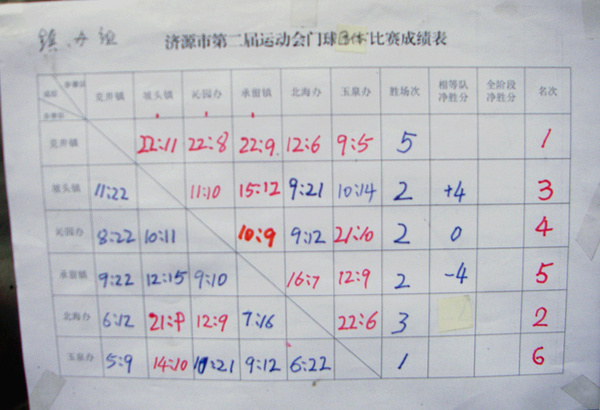 镇、办组
济源市第二届运动会门球团体比赛成绩表
参赛队 克井镇 坡头镇 沁园办 承留镇 北海办 玉泉办 胜场次 相等队净胜分 全阶段净胜分 名次
参赛队
克井镇 22:11 22:8 22:9 12:6 9:5 5 1
坡头镇 11:22 11:10 15:12 9:21 10:14 2 +4 3
沁园办 8:22 10:11 10:9 9:12 21:10 2 0 4
承留镇 9:22 12:15 9:10 16:7 12:9 2 -4 5
北海办 6:12 21:9 12:9 7:16 22:6 3 2
玉泉办 5:9 14:10 10:21 9:12 6:22 1 6